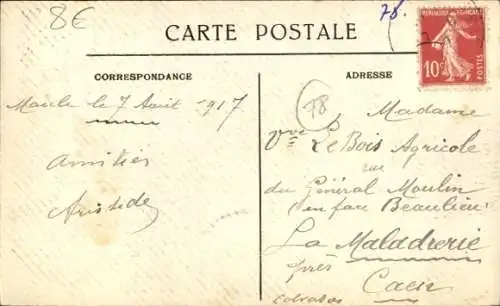 8€
78.
CARTE POSTALE
CORRESPONDANCE
ADRESSE
REPUBLIQUE FRANÇAISE
10c
POSTES
78
Maule le 7 Août 1917
Amitiés
Aristide
Madame
Vve Le Bois Agricole
rue
du Général Moulin
(en face Beaulieu)
La Maladrerie
près
Caen
Calvados